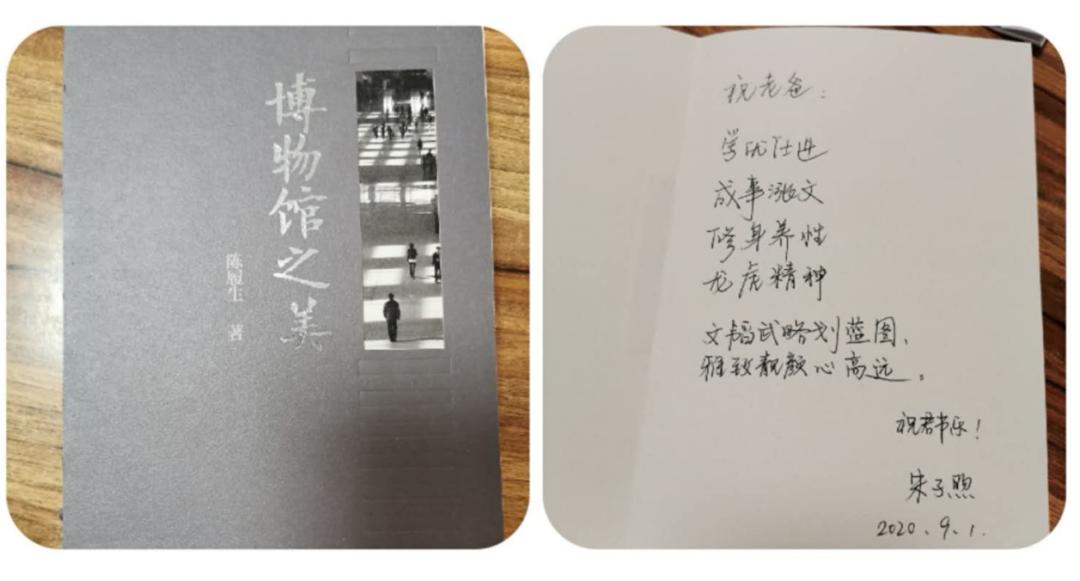 博物馆之美
陈履生 著
祝老爸：
学优仕进
成事涨文
修身养性
龙虎精神
文韬武略划蓝图、
雅致靓颜心高远。
祝君书乐！
宋子煦
2020、9、1.